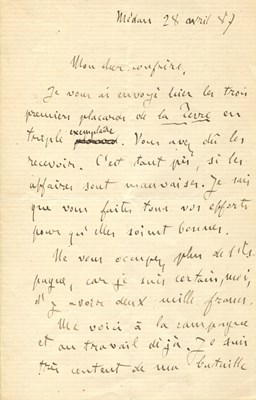 Médan 28 avril 87
Mon cher confrère,
Je vous ai envoyé hier les trois
premiers placards de la Terre en
triple exemplaire. Vous avez dû les
recevoir. C'est tant pis, si les
affaires sont mauvaises. Je sais
que vous faites tous vos efforts
pour qu'elles soient bonnes.
Ne vous occupez plus de l'Es-
pagne, car je suis certain, moi,
d'y avoir deux mille francs.
Me voici à la campagne
et au travail déjà. Je suis
très content de ma bataille